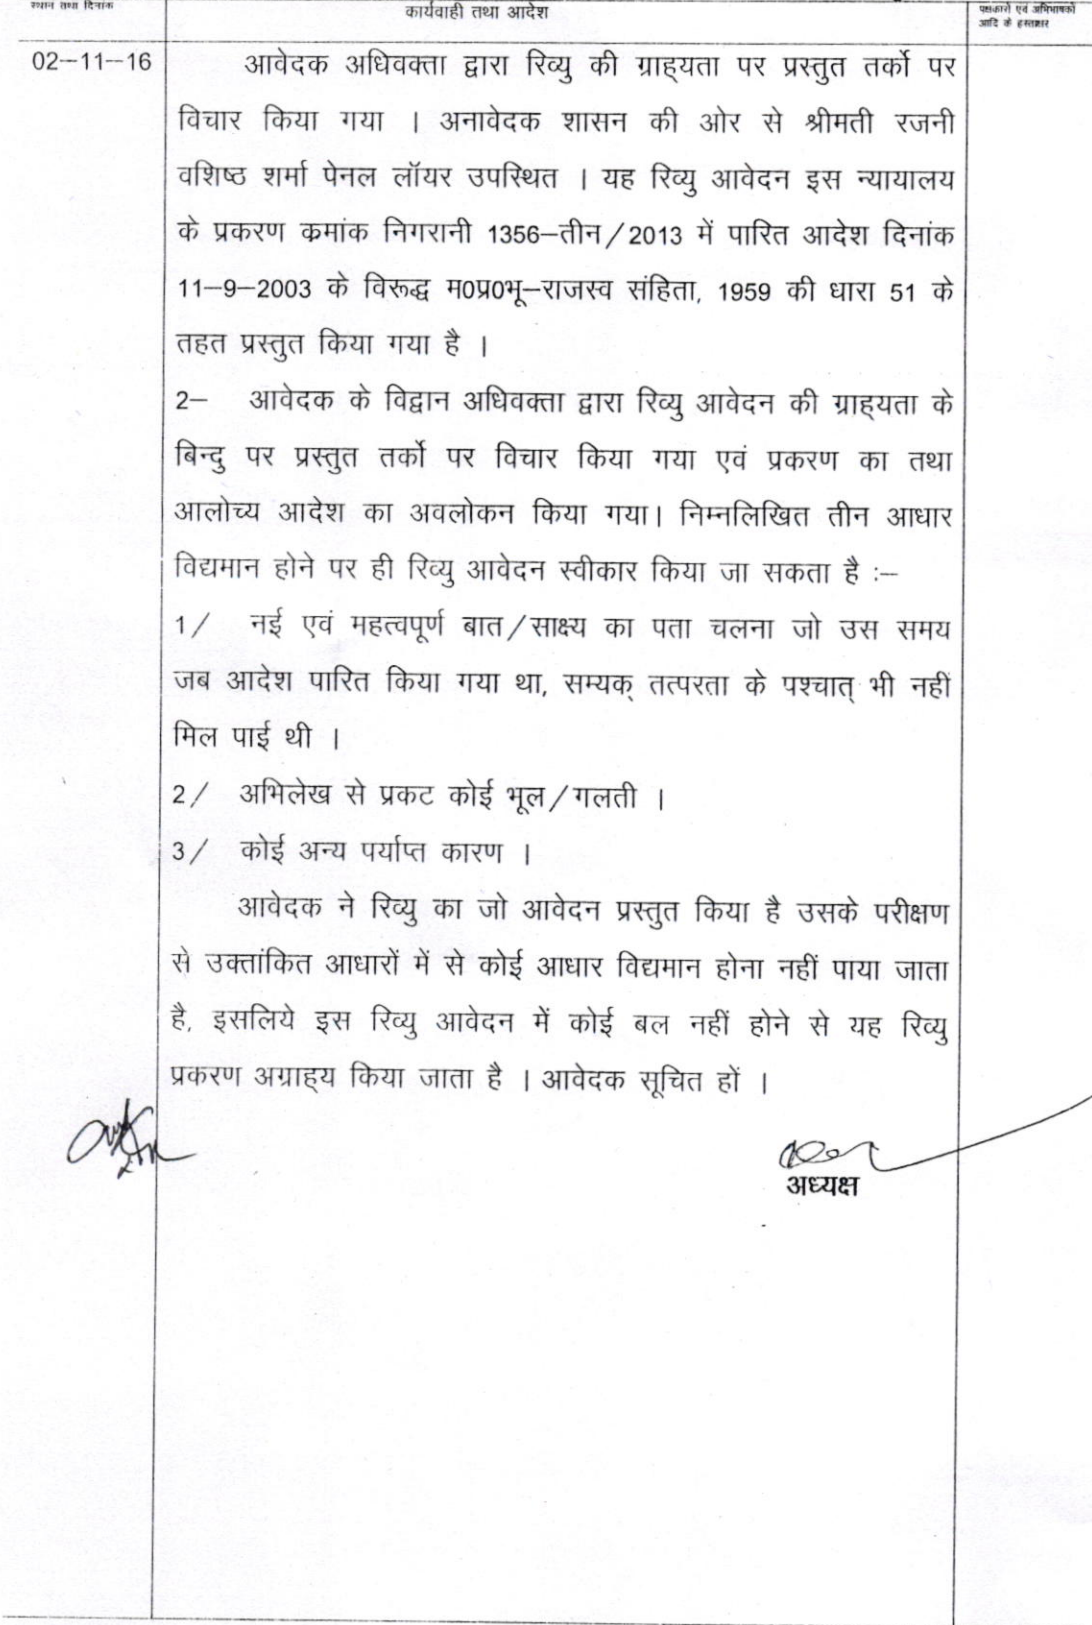 स्थान तथा दिनांक
कार्यवाही तथा आदेश
पक्षकारों एवं अभिभाषकों
आदि के हस्ताक्षर
02–11–16
आवेदक अधिवक्ता द्वारा रिव्यु की ग्राह्यता पर प्रस्तुत तर्को पर
विचार किया गया । अनावेदक शासन की ओर से श्रीमती रजनी
वशिष्ठ शर्मा पेनल लॉयर उपस्थित । यह रिव्यु आवेदन इस न्यायालय
के प्रकरण कमांक निगरानी 1356–तीन/2013 में पारित आदेश दिनांक
11–9–2003 के विरूद्ध म0प्र0भू–राजस्व संहिता, 1959 की धारा 51 के
तहत प्रस्तुत किया गया है ।
2– आवेदक के विद्वान अधिवक्ता द्वारा रिव्यु आवेदन की ग्राह्यता के
बिन्दु पर प्रस्तुत तर्को पर विचार किया गया एवं प्रकरण का तथा
आलोच्य आदेश का अवलोकन किया गया। निम्नलिखित तीन आधार
विद्यमान होने पर ही रिव्यु आवेदन स्वीकार किया जा सकता है :–
1/ नई एवं महत्वपूर्ण बात/साक्ष्य का पता चलना जो उस समय
जब आदेश पारित किया गया था, सम्यक् तत्परता के पश्चात् भी नहीं
मिल पाई थी ।
2/ अभिलेख से प्रकट कोई भूल/गलती ।
3/ कोई अन्य पर्याप्त कारण ।
आवेदक ने रिव्यु का जो आवेदन प्रस्तुत किया है उसके परीक्षण
से उक्तांकित आधारों में से कोई आधार विद्यमान होना नहीं पाया जाता
है, इसलिये इस रिव्यु आवेदन में कोई बल नहीं होने से यह रिव्यु
प्रकरण अग्राह्य किया जाता है । आवेदक सूचित हों ।
अध्यक्ष